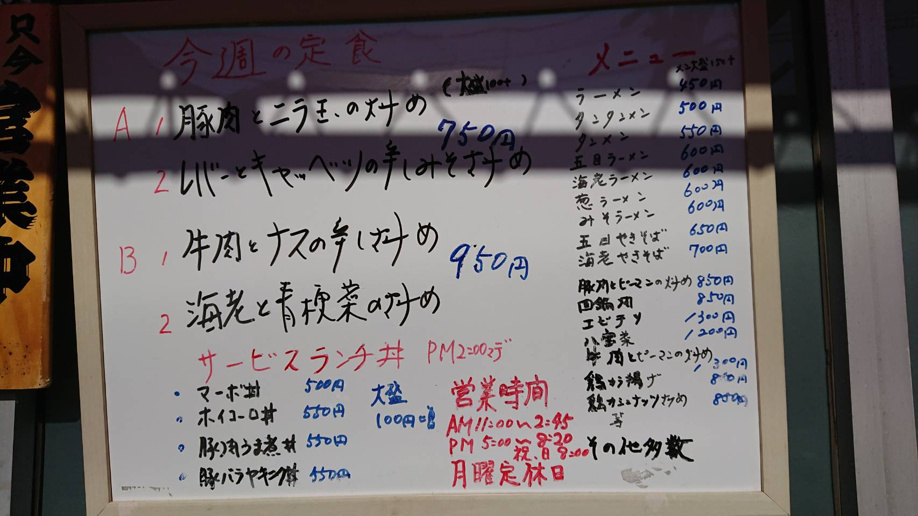 只今
営業中
今週の定食
(大盛100+)
A 1 豚肉とニラ玉の炒め
750円
2 レバーとキャッベツの辛しみそ炒め
B 1 牛肉とナスの辛し炒め
950円
2 海老と青梗菜の炒め
サービスランチ丼 PM2:00マデ
・マーボ丼 500円
・ホイコーロ丼 550円
・豚バラヤキニク丼 550円
大盛
100円増
営業時間
AM11:00〜2:45
PM 5:00〜8:20
祝.日 8:00
月曜定休日
メニュー
ラーメン 450円
タンタンメン 500円
タンメン 550円
五目ラーメン 600円
海老ラーメン 600円
葱ラーメン 600円
みそラーメン 600円
五目やきそば 650円
海老やきそば 700円
豚肉とピーマンの炒め 850円
回鍋肉 850円
エビチリ 1300円
八宝菜 1200円
牛肉とピーマンの炒め 1300円
鶏から揚げ 850円
鶏カシュナッツ炒め 850円
等
その他多数